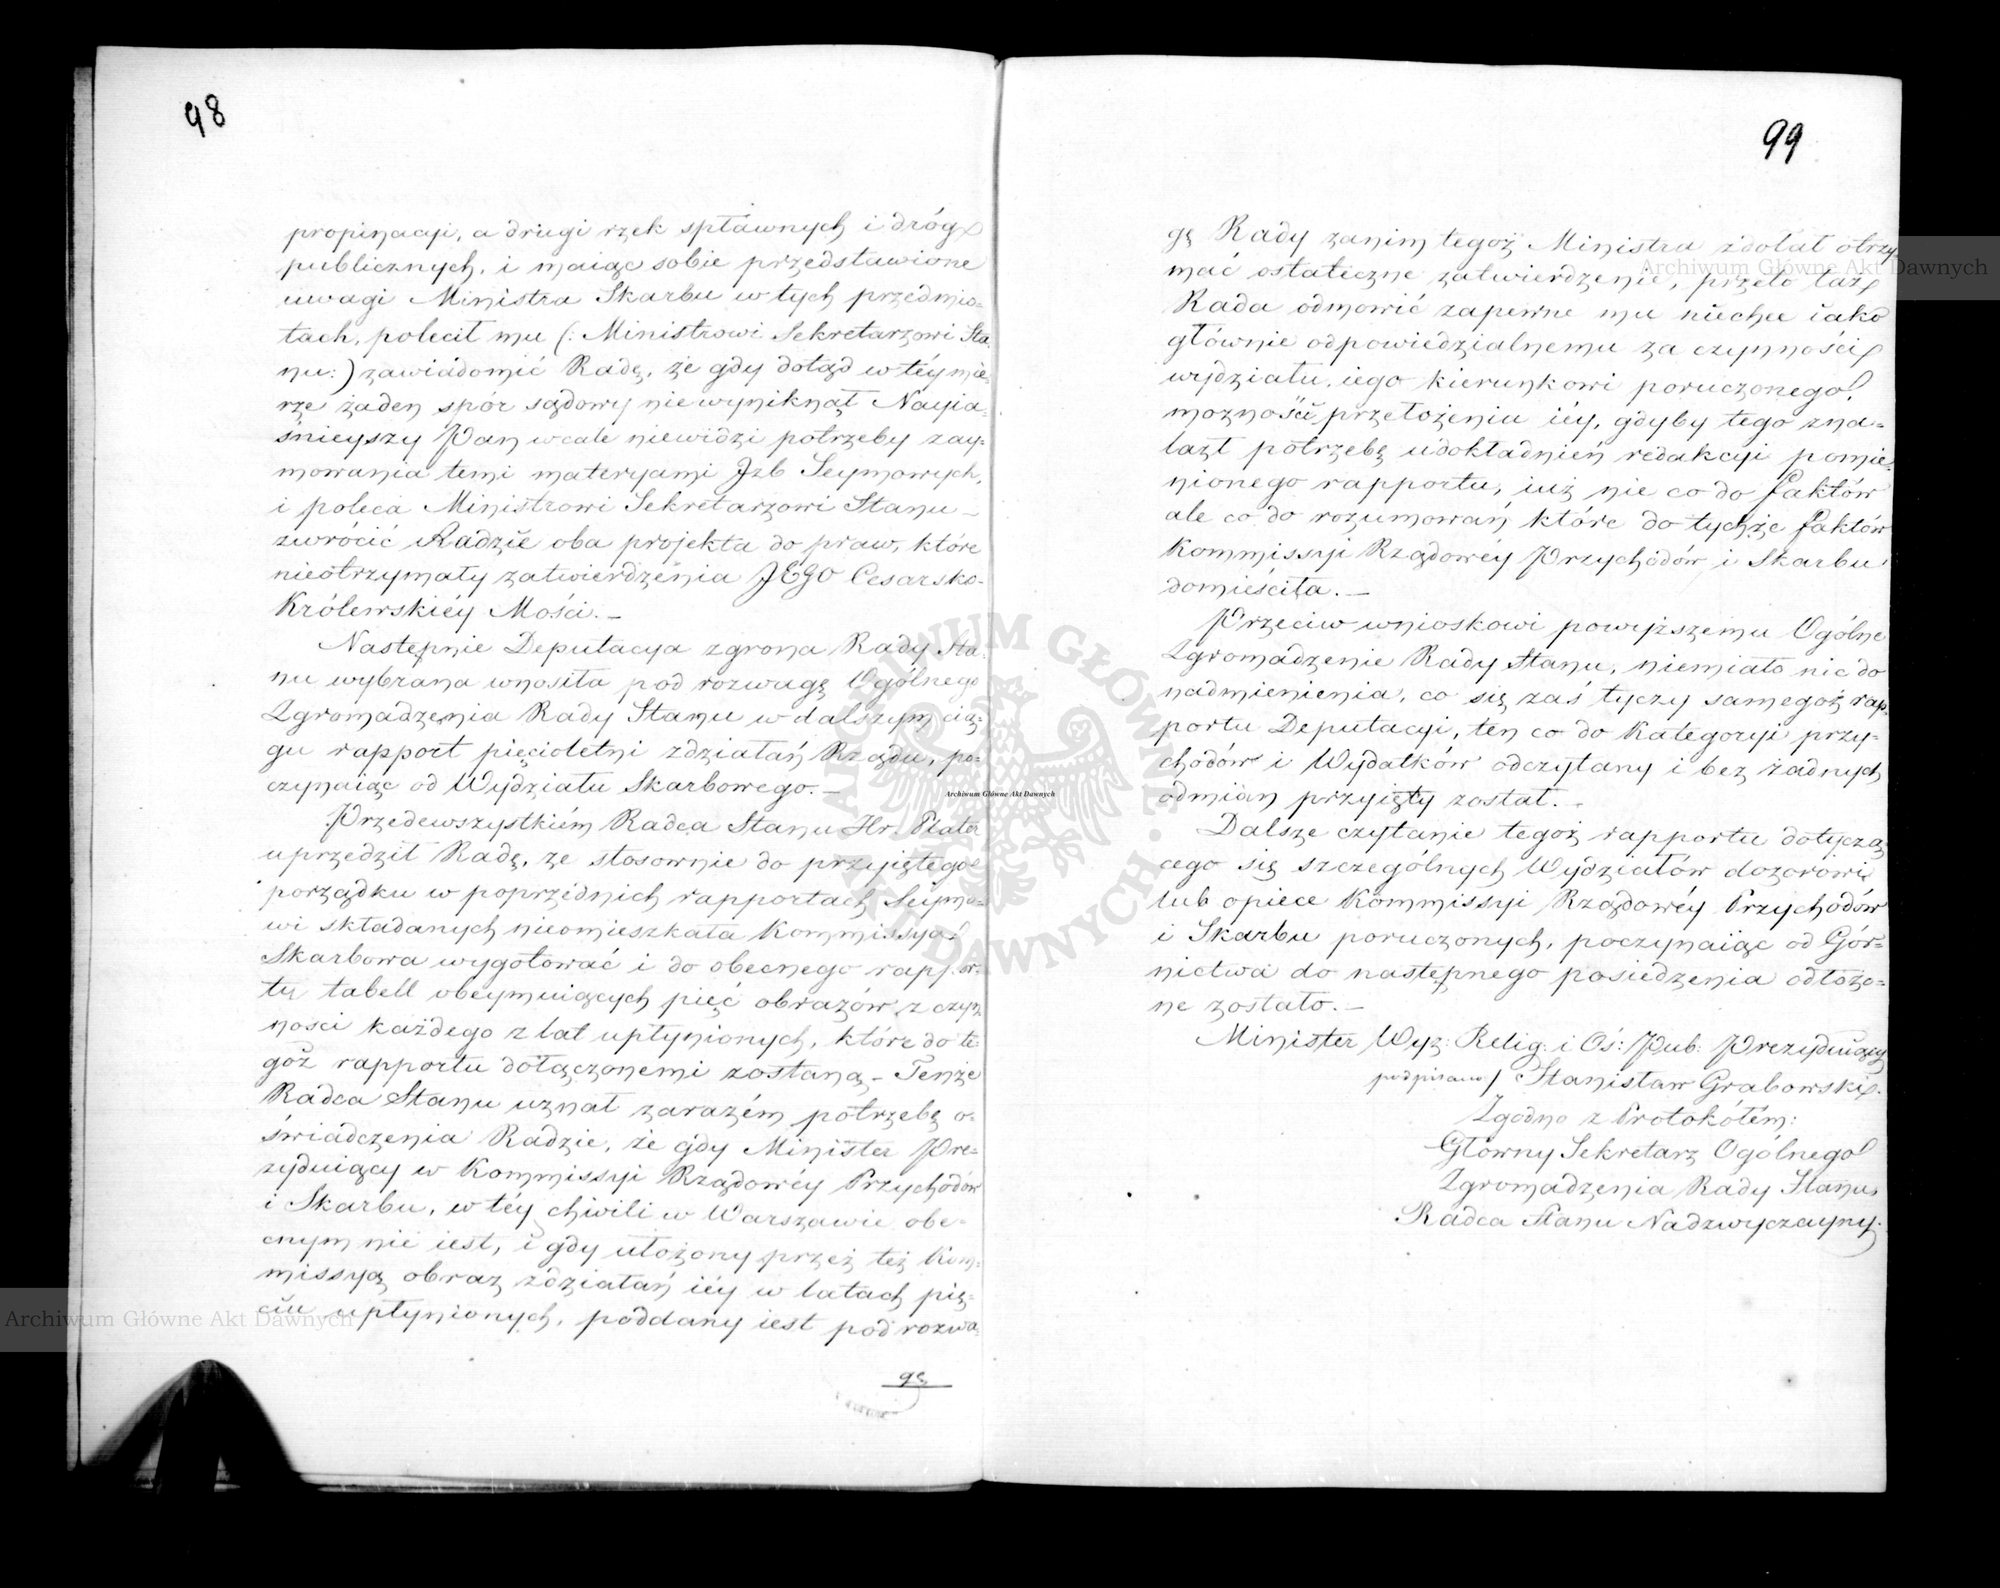 98
propinacyi, a drugi rzek spławnych i dróg
publicznych, i maiąc sobie przedstawione
uwagi Ministra Skarbu w tych przedmio=
tach, polecił mu (: Ministrowi Sekretarzowi Sta=
nu:) zawiadomić Radę, że gdy dotąd w téy mie=
rze żaden spór sądowy niewyniknął Nayia=
śnieyszy Pan wcale niewidzi potrzeby zay=
mowania temi materyami Izb Seymowych,
i poleca Ministrowi Sekretarzowi Stanu –
zwrócić Radzie oba projekta do praw, które
nieotrzymały zatwierdzenia JEGO Cesarsko-
Królewskiéy Mości. –
Następnie Deputacya z grona Rady Sta=
nu wybrana wnosiła pod rozwagę Ogólnego
Zgromadzenia Rady Stanu w dalszym cią=
gu rapport pięcioletni z działań Rządu, po=
czynaiąc od Wydziału Skarbowego. –
Przedewszystkiém Radca Stanu Hr. Plater
uprzedził Radę, że stosownie do przyiętego
porządku w poprzednich rapportach Seymo=
wi składanych nieomieszkała Kommissya
Skarbowa wygotować i do obecnego rappor=
tu tabell obeymuiących pięć obrazów z czyn=
ności każdego z lat upłynionych, które do te=
goż rapportu dołączonemi zostaną. – Tenże
Radca Stanu uznał zarazém potrzebę o=
świadczenia Radzie, że gdy Minister Pre=
zyduiący w Kommissyi Rządowéy Przychodów
i Skarbu, w téy chwili w Warszawie obe=
cnym nie iest, i gdy ułożony przez też Kom=
missyą obraz z działań iéy w latach pię=
ciu upłynionych, poddany iest pod rozwa=
gę
99
gę Rady zanim tegoż Ministra zdołał otrzy
mać ostateczne zatwierdzenie, przeto taż
Rada odmówić zapewne mu niechce iako
głównie odpowiedzialnemu za czynności
wydziału, iego kierunkowi poruczonego,
możności przełożenia iéy, gdyby tego zna=
lazł potrzebę udokładnień redakcyi pomie=
nionego rapportu, iuż nie co do faktów
ale co do rozumowań które do tychże faktów
Kommissyi Rządowéy Przychodów i Skarbu
domieściła. –
Przeciw wnioskowi powyższemu Ogólne
Zgromadzenie Rady Stanu, niemiało nic do
nadmienienia, co się zaś tyczy samegoż rap=
portu Deputacyi, ten co do Kategoryi przy=
chodów i Wydatków odczytany i bez żadnych
odmian przyięty został. –
Dalsze czytanie tegoż rapportu dotyczą
cego się szczególnych Wydziałów dozorowi
lub opiece Kommissyi Rządowéy Przychodów
i Skarbu poruczonych, poczynaiąc od Gór=
nictwa do następnego posiedzenia odłożo=
ne zostało. –
Minister Wyz: Relig: i Oś: Pub: Prezyduiący
podpisano / Stanisław Grabowski.
Zgodno z Protokółem:
Główny Sekretarz Ogólnego
Zgromadzenia Rady Stanu,
Radca Stanu Nadzwyczayny.
Archiwum Główne Akt Dawnych
Archiwum Główne Akt Dawnych
Archiwum Główne Akt Dawnych
ARCHIWUM GŁÓWNE AKT DAWNYCH